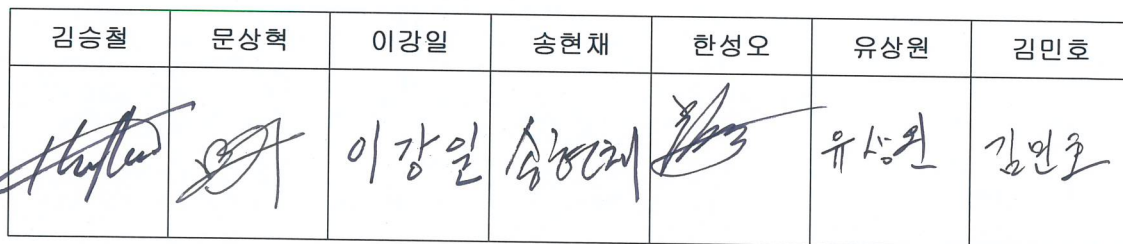 김승철 문상혁 이강일 송현채 한성오 유상원 김민호
이강일 송현채 유상원 김민호